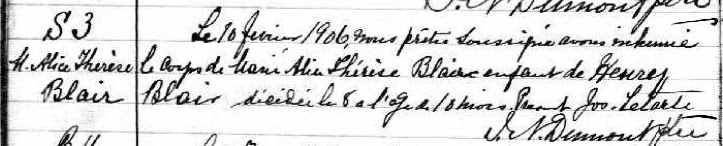 J. N. Dumont ptre
S 3 Le 10 fevrier 1906, nous prêtre soussigné avons inhumé
M. Alice Thérèse le corps de Marie Alice Thérèse Blair enfant de Henrey
Blair Blair décédée le 8 a l'age de 10 mois. Present Jos. Letarte
J. N. Dumont ptre